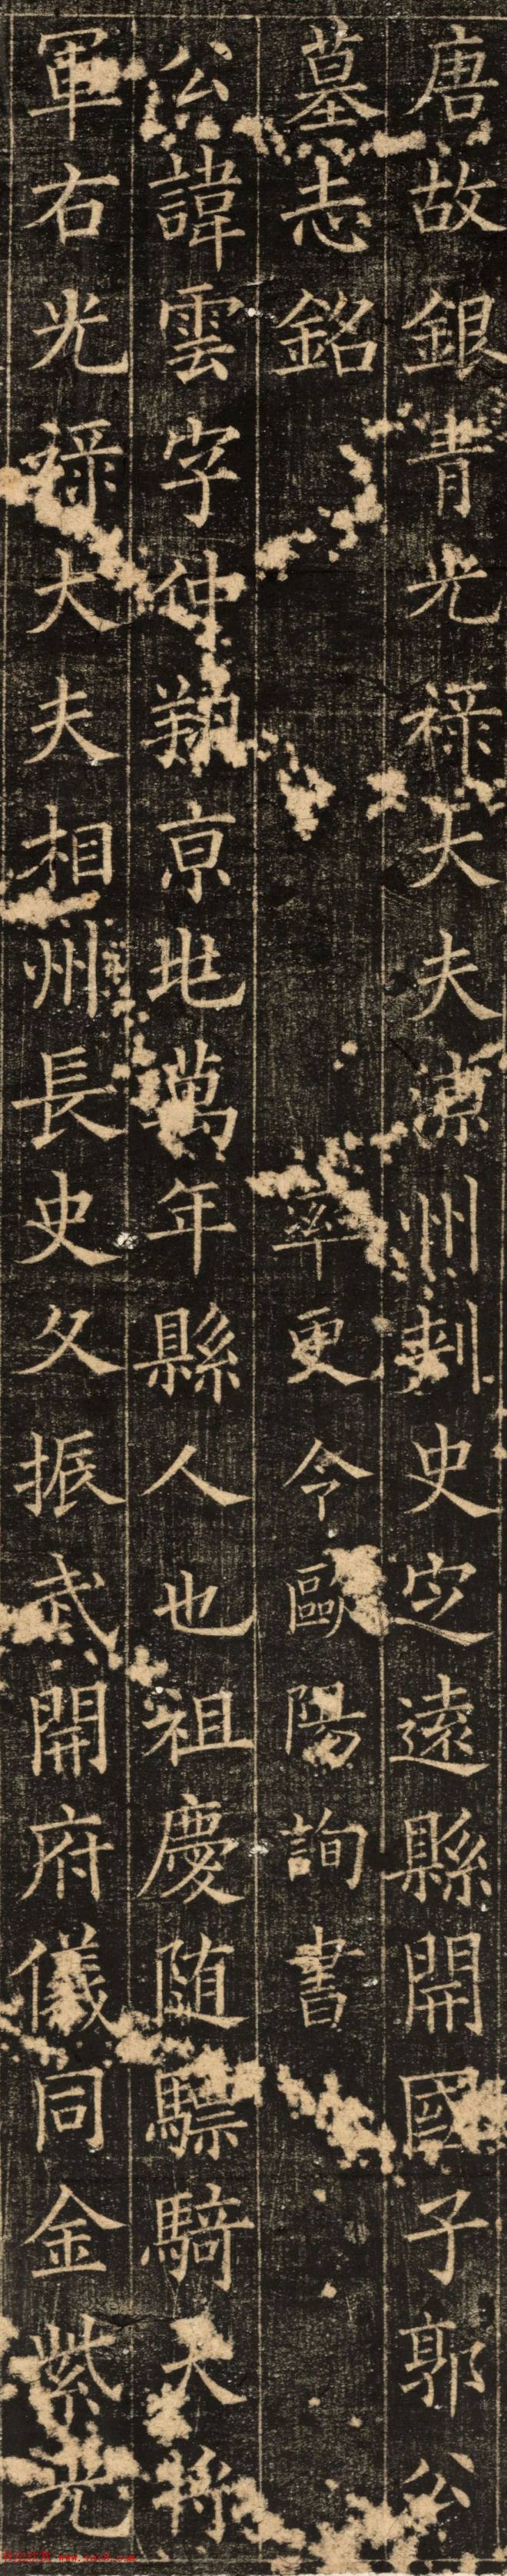 唐故銀青光禄大夫深州刾史㝎遠縣開國子郭公
墓志銘 率更令歐陽詢書
公諱雲字仲翔京兆萬年縣人也祖慶随驃騎大將
軍右光禄大夫相州長史父振武開府儀同金紫光